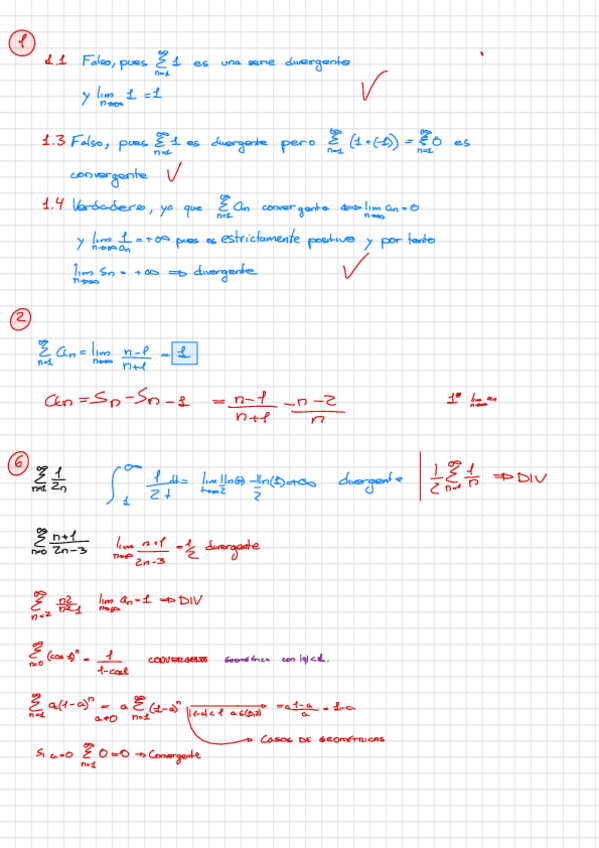 1
1.1 Falso, pues ∞∑n=1 1 es una serie divergente
y lim n→∞ 1 = 1
1.3 Falso, pues ∞∑n=1 1 es divergente pero ∞∑n=1 (1+(-1)) = ∞∑n=1 0 es
convergente
1.4 Verdadero, ya que ∞∑n=1 an convergente ⟺ lim n→∞ an = 0
y lim n→∞ 1/an = +∞ pues es estrictamente positivo y por tanto
lim n→∞ Sn = +∞ ⟹ divergente
2
∞∑n=1 an = lim n→∞ (n-1)/(n+1) = 1
an = Sn - Sn-1 = (n-1)/(n+1) - (n-2)/n 1º lim n→∞ an
6
∞∑n=1 1/2n ∫1^∞ 1/2t dt = lim n→∞ 1/2 ln(∞) - 1/2 ln(1) = +∞ divergente 1/2 ∞∑n=1 1/n ⟹ DIV
∞∑n=0 (n+1)/(2n-3) lim n→∞ (n+1)/(2n-3) = 1/2 divergente
∞∑n=2 n2/(n2-1) lim n→∞ an = 1 ⟹ DIV
∞∑n=0 (cos 1)^n = 1/(1-cos1) CONVERGENTE Geométrica con |q|<1.
∞∑n=1 a(1-a)^n = a≠0 a ∞∑n=1 (1-a)^n |1-a|<1 a∈(0,2) = a (1-a)/a = 1-a
CASOS DE GEOMÉTRICAS
Si a=0 ∞∑n=1 0 = 0 → Convergente